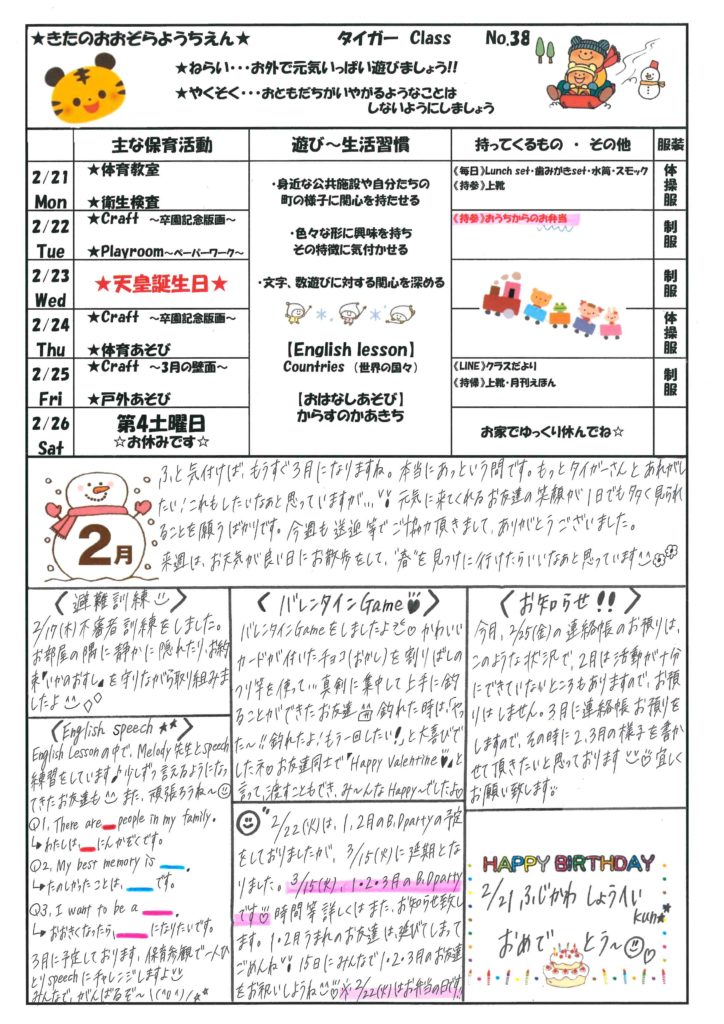 ★きたのおおぞらようちえん★ タイガー Class No.38
★ねらい・・・お外で元気いっぱい遊びましょう!!
★やくそく・・・おともだちがいやがるようなことは
しないようにしましょう
主な保育活動 遊び～生活習慣 持ってくるもの ・ その他 服装
2/21 Mon
★体育教室
★衛生検査
《毎日》Lunch set・歯みがきset・水筒・スモック
《持参》上靴
体操服
2/22 Tue
★Craft ～卒園記念版画～
★Playroom～ペーパーワーク～
《持参》おうちからのお弁当
制服
2/23 Wed
★天皇誕生日★
制服
2/24 Thu
★Craft ～卒園記念版画～
★体育あそび
体操服
2/25 Fri
★Craft ～3月の壁面～
★戸外あそび
《LINE》クラスだより
《持帰》上靴・月刊えほん
制服
2/26 Sat
第4土曜日
☆お休みです☆
お家でゆっくり休んでね☆
・身近な公共施設や自分たちの
町の様子に関心を持たせる
・色々な形に興味を持ち
その特徴に気付かせる
・文字、数遊びに対する関心を深める
【English lesson】
Countries （世界の国々）
【おはなしあそび】
からすのかあきち
2月
ふと気付けば、もうすぐ3月になりますね。本当にあっという間です。もっとタイガーさんとあれがし
たい!これもしたいなぁと思っていますが... 元気に来てくれるお友達の笑顔が1日でも多く見られ
ることを願うばかりです。今週も送迎等でご協力頂きまして、ありがとうございました。
来週は、お天気が良い日にお散歩をして、"春"を見つけに行けたらいいなぁと思っています
〈避難訓練〉
2/17(木)不審者訓練をしました。
お部屋の隅に静かに隠れたり、お約
束「いかのおすし」を守りながら取り組みま
したよ
〈English speech★★〉
English Lessonの中で、Melody先生とspeech
練習をしています♪少しずつ言えるようになっ
てきたお友達も また、頑張ろうね～
Q1, There are people in my family.
↳わたしは、 にんかぞくです。
Q2, My best memory is .
↳たのしかったことは、 です。
Q3, I want to be a .
↳おおきくなったら、 になりたいです。
3月に予定しております、保育参観で一人ひ
とりspeechにチャレンジしますよ
みんなで、がんばるぞ～\(^o^)/★★
〈バレンタインGame♥〉
バレンタインGameをしましたよ かわいい
カードが付いたチョコ(おかし)を割りばしの
つり竿を使って... 真剣に集中して上手に釣
ることができたお友達 釣れた時は、「やっ
た～!!釣れたよ!もう一回したい!」と大喜びで
したね お友達同士で「Happy Valentine♥」と
言って、渡すこともでき、み～んなHappy～でしたよ♡
2/22(火)は、1,2月のB.Dpartyの予定
をしておりましたが、3/15(火)に延期とな
りました。3/15(火)、1・2・3月のB.Dparty
です♡時間等詳しくはまた、お知らせ致し
ます。1・2月うまれのお友達は、延びてしまって
ごめんね 15日にみんなで1・2・3月のお友達
をお祝いしようね ※2/22(火)はお弁当の日です!!
〈お知らせ!!〉
今月、2/25(金)の連絡帳のお預りは、
このような状況で、2月は活動が十分
にできていないところもありますので、お預
りはしません。3月に連絡帳お預りを
しますので、その時に2,3月の様子を書か
せて頂きたいと思っております 宜しく
お願い致します
HAPPY BIRTHDAY
2/21,ふじかわ しょうへい
kun★
おめでとう～